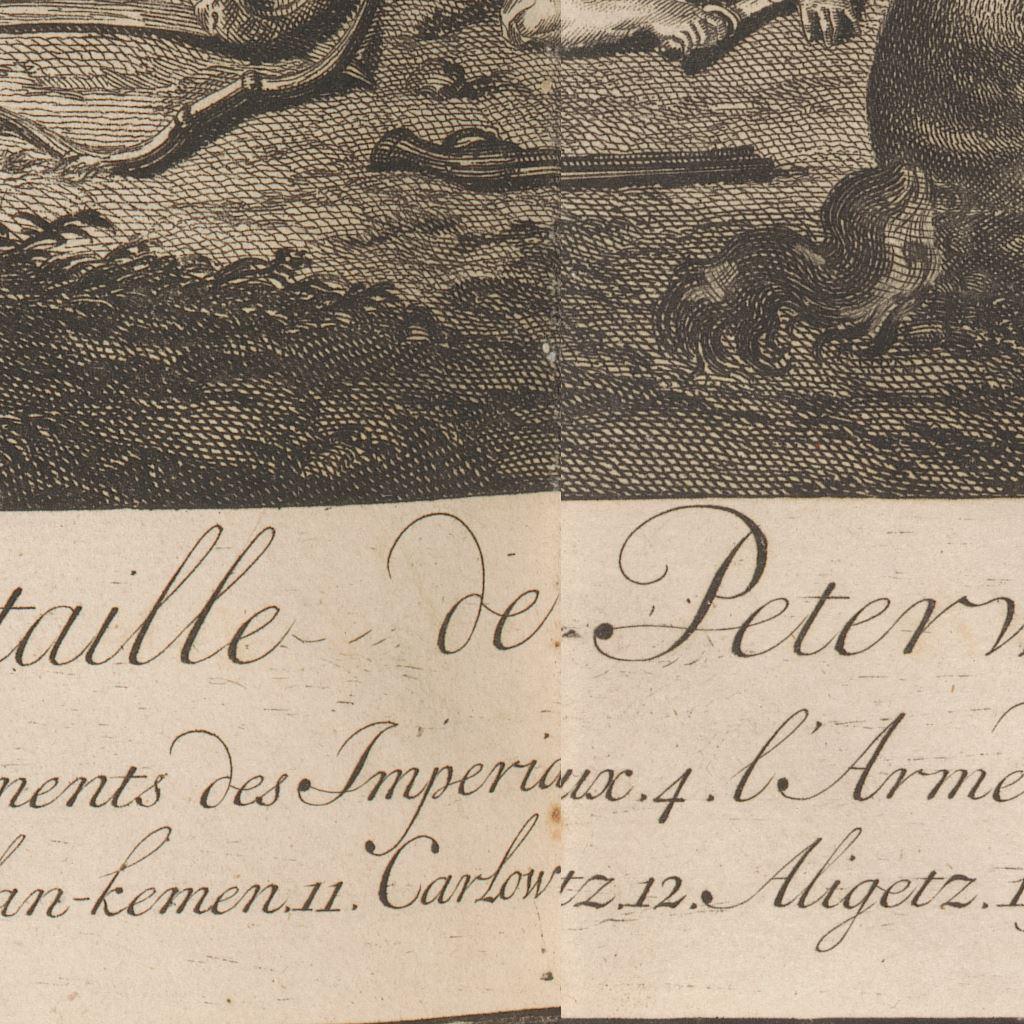 taille de Peterw
ments des Imperiaux. 4. l'Armé
lan-kemen. 11. Carlowtz. 12. Aligetz. 1